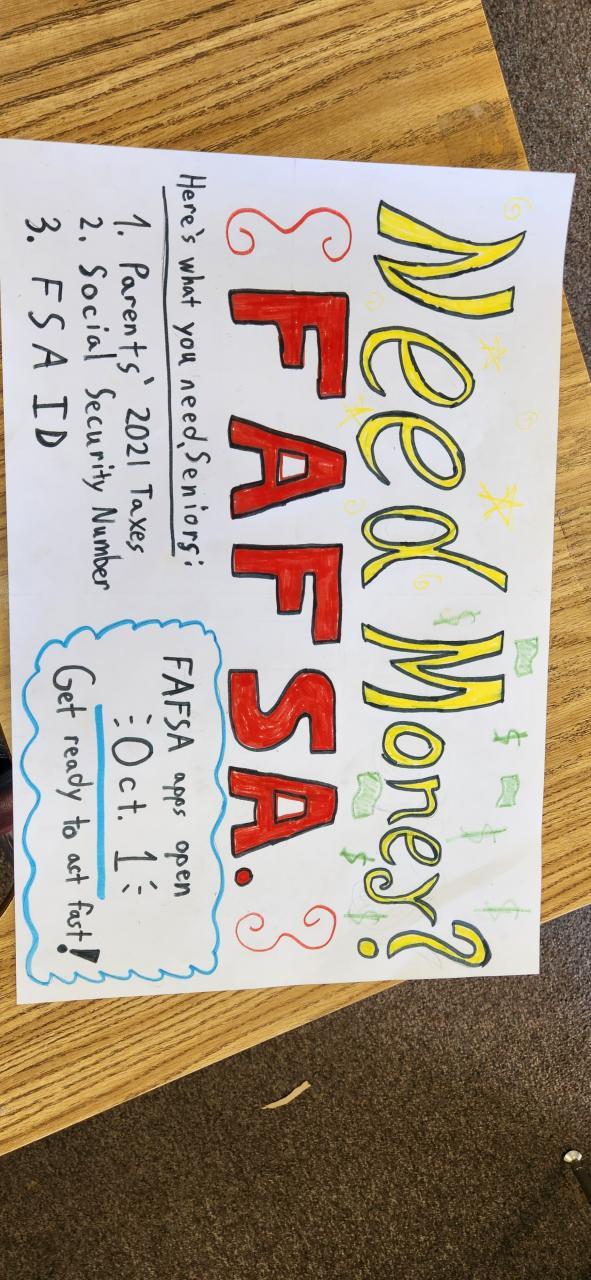 Need Money?
FAFSA.
Here's what you need, Seniors:
1. Parents' 2021 Taxes
2. Social Security Number
3. FSA ID
FAFSA apps open
Oct. 1
Get ready to act fast!